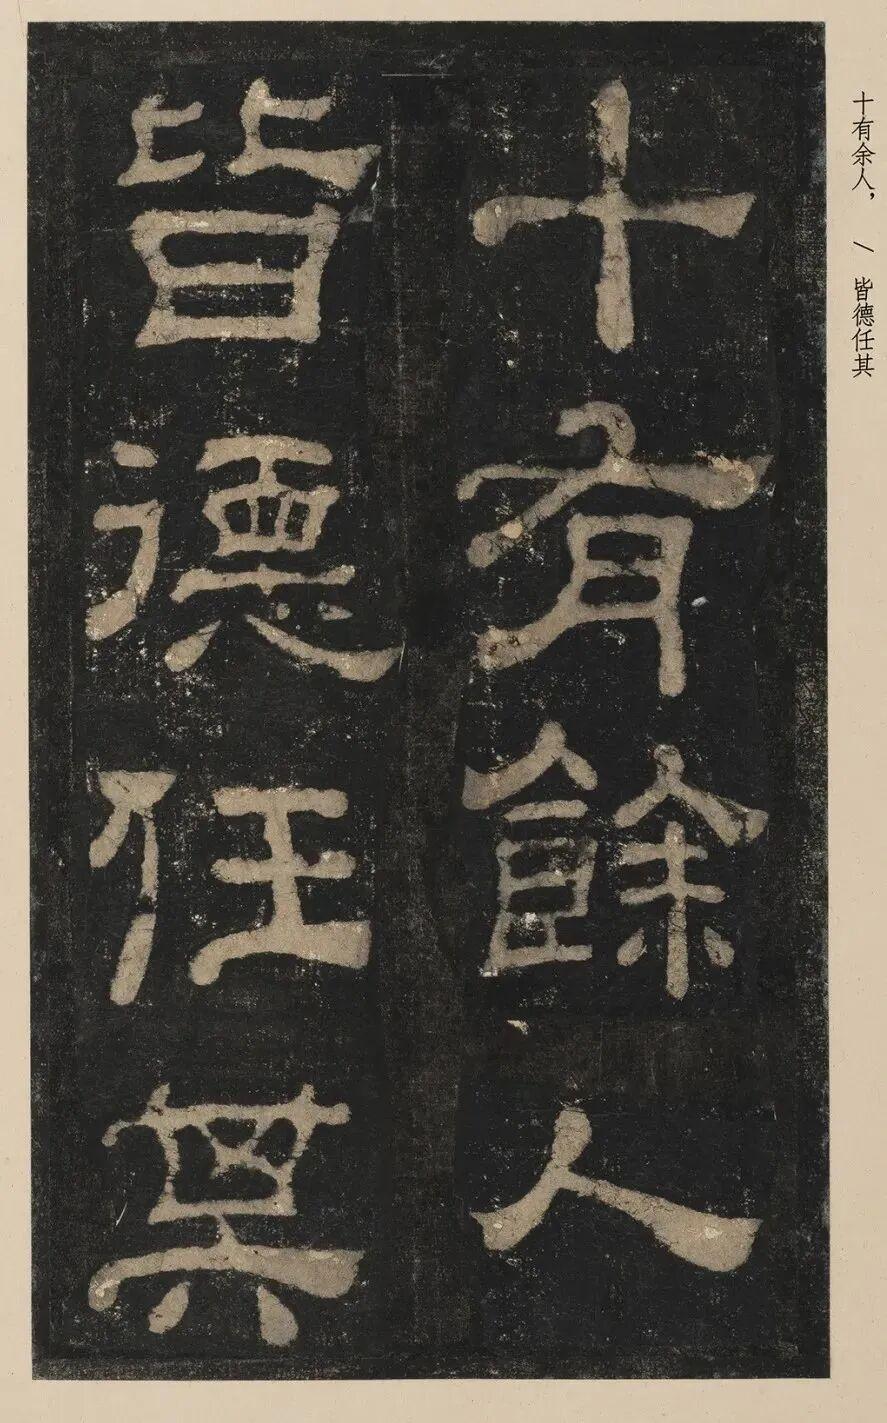 十有余人，/皆德任其
十有餘人
皆德任其